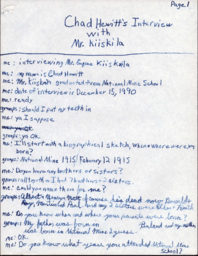 Page 1
Chad Hewitt's Interview
with
Mr. Kiiskila
me: interviewing Mr. Eugene Kiiskila
me: my name is Chad Hewitt
me: Mr. Kiiskila graduated from National Mine School
me: date of interview is December 15, 1990
me: ready
groups: should I put my teeth in
me: ya I suppose
groups: ya OK.
me: I'll start with a biographical sketch, when where were you
born?
groups: National Mine 1915, February 12 1915
me: Do you have any brothers or sisters?
me: could you name them for me?
me: Do you know when and where your parents were born?
groups: My father was born in Finland and my mother
was born in National Mine I guess.
me: OK.
me: Do you know what years you attended National Mine
School?